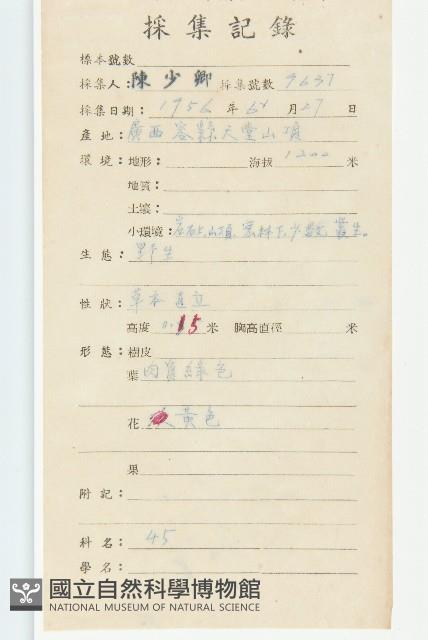 採集記錄
標本號數
採集人：陳少卿 採集號數 9637
採集日期：1956 年 6 月 27 日
產地：廣西容縣天堂山頂
環境：地形： 海拔 1200 米
地質：
土壤：
小環境：岩石上山頂 密林下 叢生。
生態：野生
性狀：草本直立
高度 0.15 米 胸高直徑 米
形態：樹皮
葉 肉質綠色
花 黃色
果
附記：
科名： 45
學名：
國立自然科學博物館
NATIONAL MUSEUM OF NATURAL SCIENCE